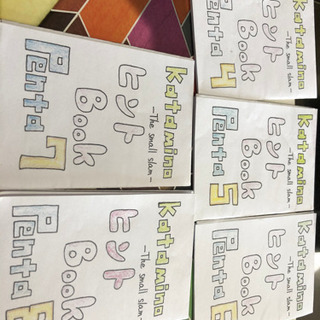 Katamino
-The small slam-
ヒント
Book
Penta 7
Katamino
-The small slam-
ヒント
Book
Penta 4
Katamino
-The small slam-
ヒント
Book
Penta 5
Katamino
-The small slam-
ヒント
Book
Penta
Katamino
-The small slam-
ヒント
Book
Penta